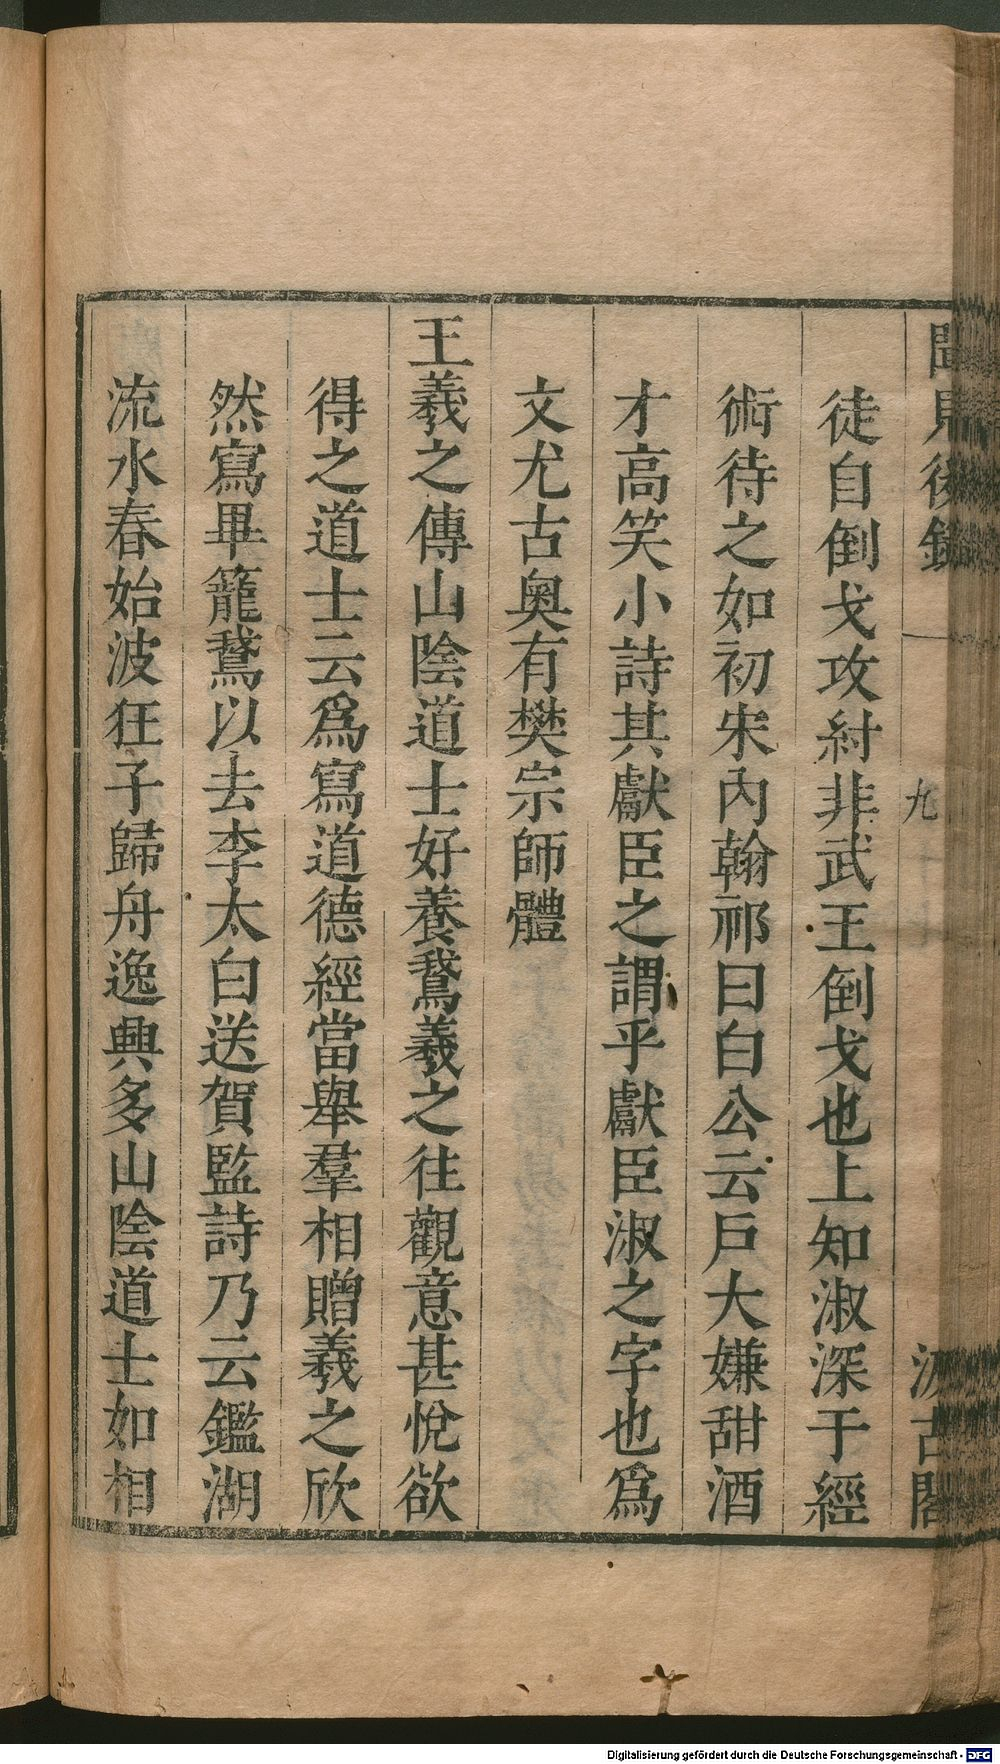 聞見後錄
九
汲古閣
徒自倒戈攻紂非武王倒戈也上知淑深于經
術待之如初宋內翰祁曰白公云戶大嫌甜酒
才高笑小詩其獻臣之謂乎獻臣淑之字也爲
文尤古奧有樊宗師體
王羲之傳山陰道士好養鵞羲之往觀意甚悅欲
得之道士云爲寫道德經當舉羣相贈羲之欣
然寫畢籠鵞以去李太白送賀監詩乃云鑑湖
流水春始波狂子歸舟逸興多山陰道士如相
Digitalisierung gefördert durch die Deutsche Forschungsgemeinschaft - DFG